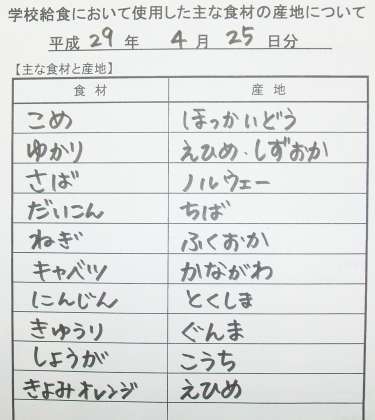 学校給食において使用した主な食材の産地について
平成 29 年 4 月 25 日分
【主な食材と産地】
食材 産地
こめ ほっかいどう
ゆかり えひめ・しずおか
さば ノルウェー
だいこん ちば
ねぎ ふくおか
キャベツ かながわ
にんじん とくしま
きゅうり ぐんま
しょうが こうち
きよみオレンジ えひめ